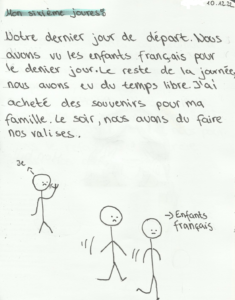 10.12.22
Mon sixième joures
Notre dernier jour de départ. Nous
avons vu les enfants français pour
le denier jour. Le reste de la journée,
nous avons eu du temps libre. J'ai
acheté des souvenirs pour ma
famille. Le soir, nous avons du faire
nos valises.
Je
→ Enfants
français